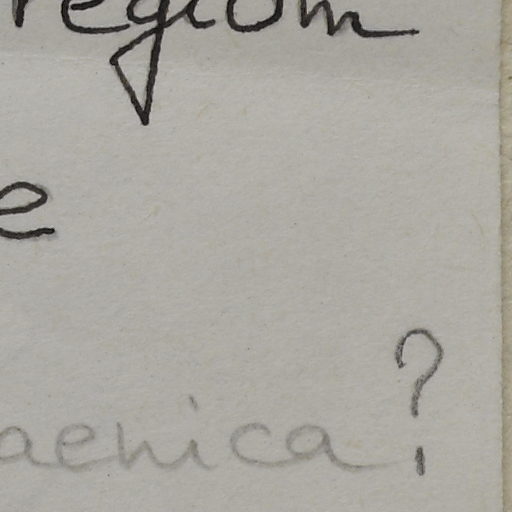 region
e
aenica ?